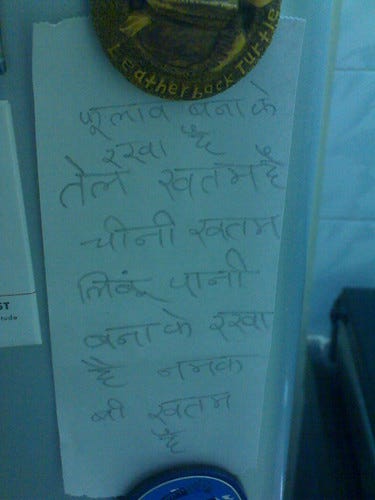 Leatherback Turtle
पूलाव बना के
रखा है
तेल खतम है
चीनी खतम
लिबूं पानी
बना के रखा
है नमक
बी खतम
है
ST